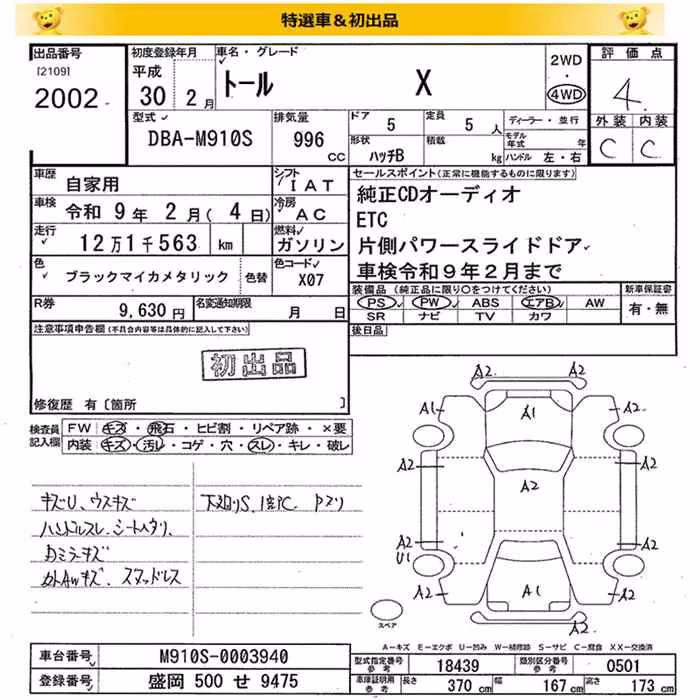 特選車＆初出品
出品番号
[2109]
2002
初度登録年月
平成
30 2月
車名・グレード
トール X
2WD
・
4WD
評価点
4
外装 内装
C C
型式
DBA-M910S
排気量
996
CC
ドア 5
定員 5 人
ディーラー・並行
形状 ハッチB
積載 kg
モデル年式 年
ハンドル 左・右
車歴 自家用
シフト IAT
車検 令和 9年 2月( 4日)
冷房 AC
走行 12万1千563 km
燃料 ガソリン
色 ブラックマイカメタリック 色替
色コード X07
R券 9,630円
名変通知期限 月 日
セールスポイント(正常に機能するものに限ります)
純正CDオーディオ
ETC
片側パワースライドドア
車検令和9年2月まで
装備品 (純正品に限り〇をつけてください)
新車保証書
PS PW ABS エアB AW
有・無
SR ナビ TV カワ
後日品
注意事項申告欄(不具合内容等は具体的に記入して下さい)
初出品
修復歴 有〔箇所 〕
検査員記入欄
FW キズ・飛石・ヒビ割・リペア跡・×要
内装 キズ・汚レ・コゲ・穴・スレ・キレ・破レ
キズU、ウスキズ
ハンドルスレ、シートヘタリ、
カトAwキズ、スタッドレス
A2 A2
A1 A1 A2
A2 A2 A2
A2 A2
U1
A2 A1 A2
スペア
A－キズ E－エクボ U－凹み W－補修跡 S－サビ C－腐食 XX－交換済
車台番号 M910S-0003940
登録番号 盛岡 500 せ 9475
型式指定番号 参考 18439
類別区分番号 参考 0501
車庫証明用 参考
長さ 370 cm 幅 167 cm 高さ 173 cm